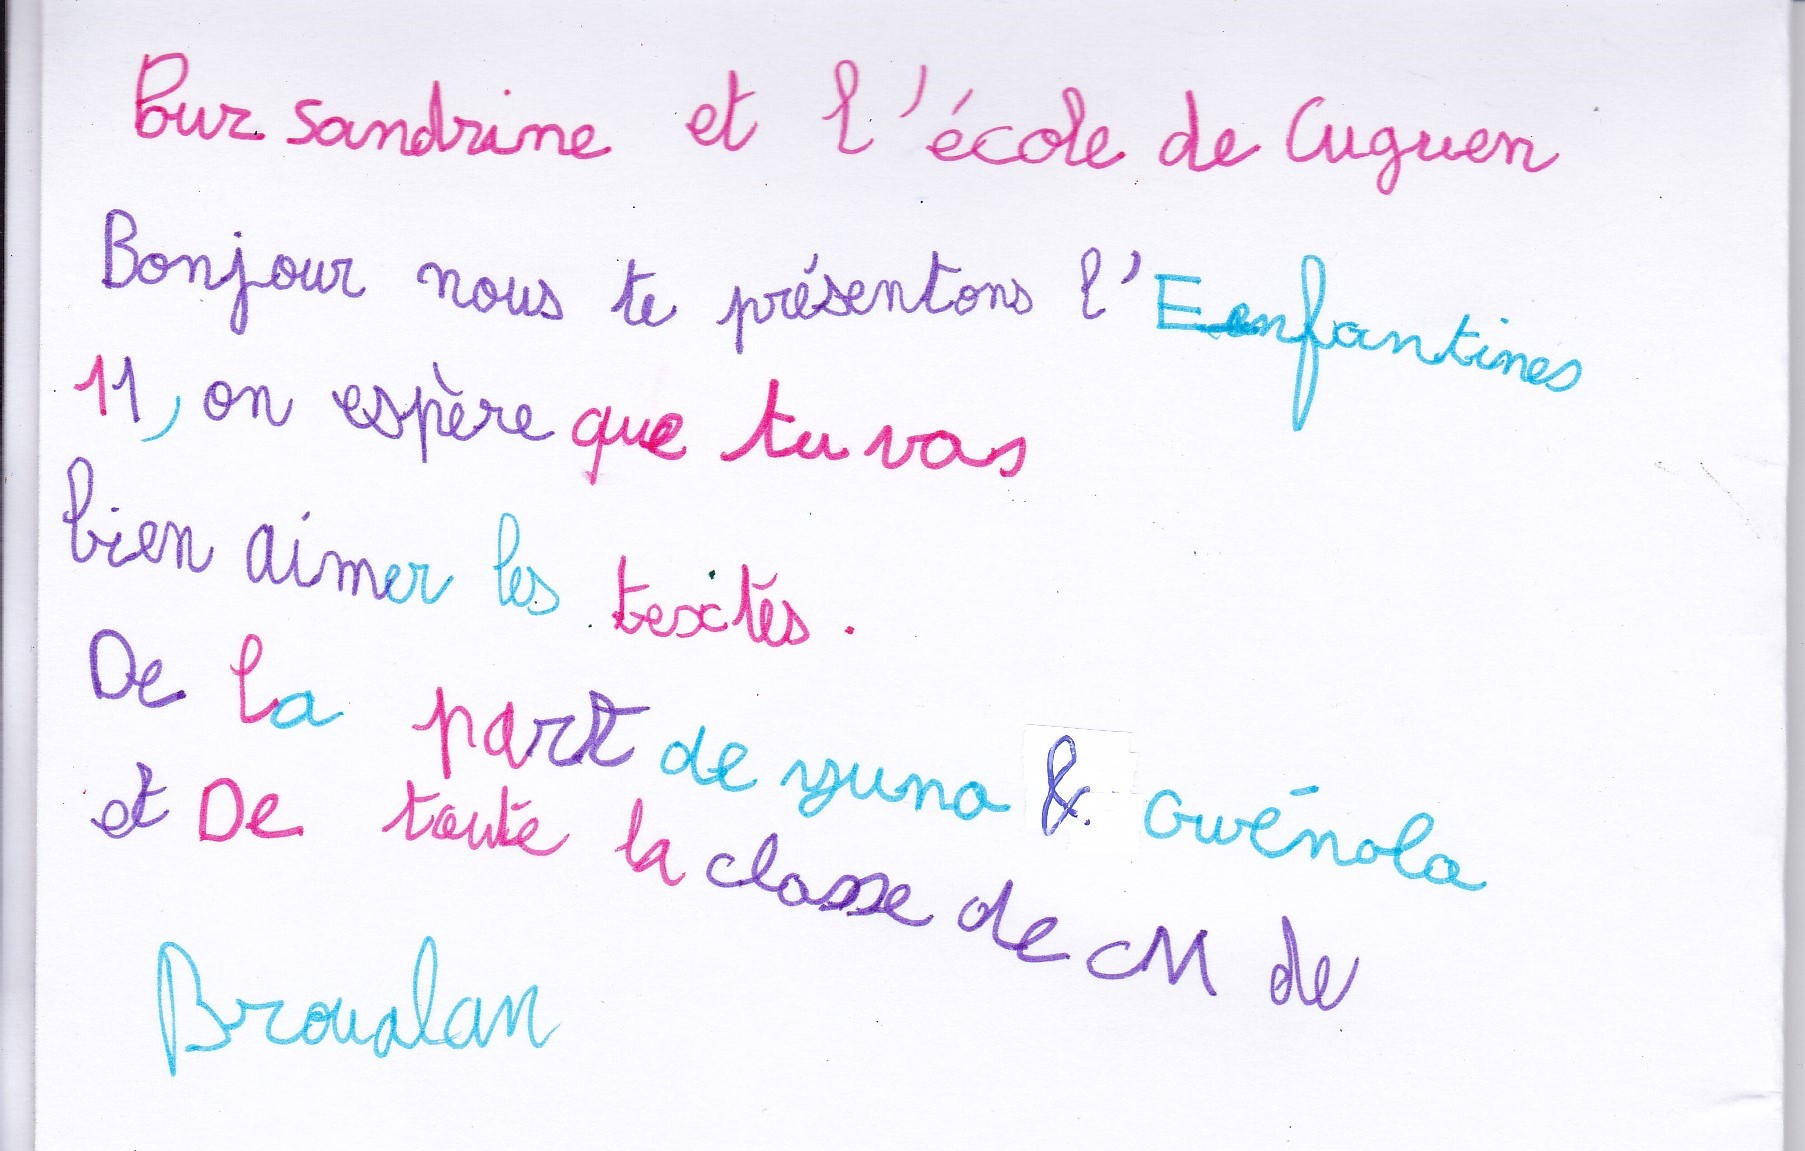 Pour sandrine et l'école de Cuguen
Bonjour nous te présentons l'Eenfantines
11, on espère que tu vas
bien aimer les textes.
De la part de yuna & Gwénola
et De toute la classe de CM de
Broualan